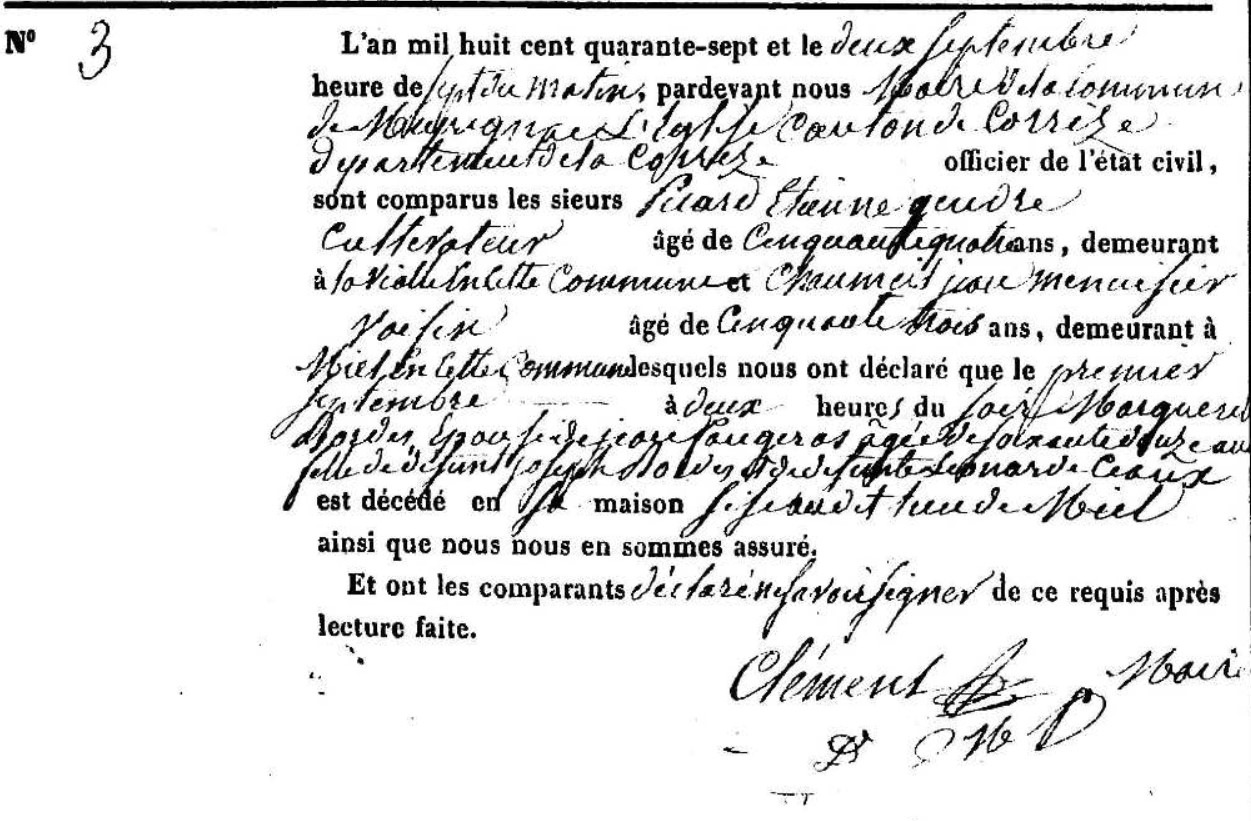 N° 3
L'an mil huit cent quarante-sept et le deux septembre
heure de sept du matin, pardevant nous Maire de la commune
de Meyrignac L'Eglise Canton de Corrèze
département de la Corrèze officier de l'état civil,
sont comparus les sieurs Picard Etienne gendre
Cultivateur âgé de Cinquante quatre ans, demeurant
à la Vialle En Cette Commune et Chaumeil jean menuisier
voisin âgé de Cinquante trois ans, demeurant à
Miel En Cette Commune lesquels nous ont déclaré que le premier
septembre à deux heures du soir Marguerite
Bordes Epouse de jean faugeras âgée de soixante douze ans
fille de défunt joseph Bordes et de défunte Léonarde Ceaux
est décédé en sa maison sise audit lieu de Miel
ainsi que nous nous en sommes assuré.
Et ont les comparants déclaré ne savoir signer de ce requis après
lecture faite.
Clément Maire